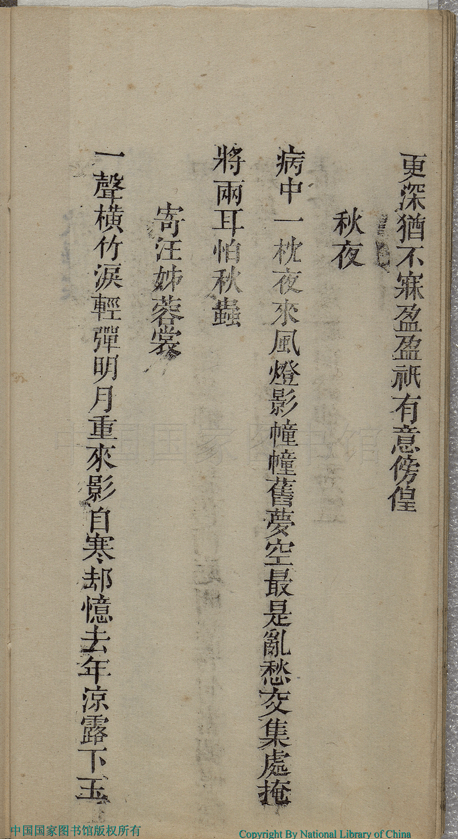 更深猶不寐盈盈祇有意傍徨
秋夜
病中一枕夜來風燈影幢幢舊夢空最是亂愁交集處掩
將兩耳怕秋蟲
寄汪姊蓉裳
一聲橫竹淚輕彈明月重來影自寒却憶去年涼露下玉
中国国家图书馆版权所有
Copyright By National Library of China